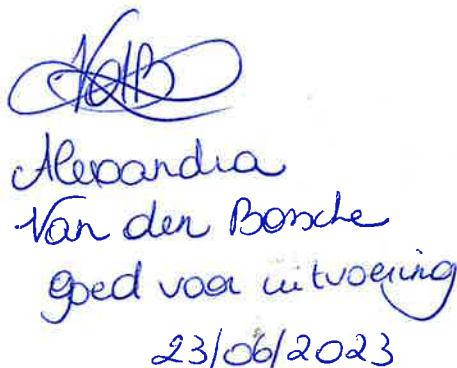 Alexandra
Van den Bossche
goed voor uitvoering
23/06/2023